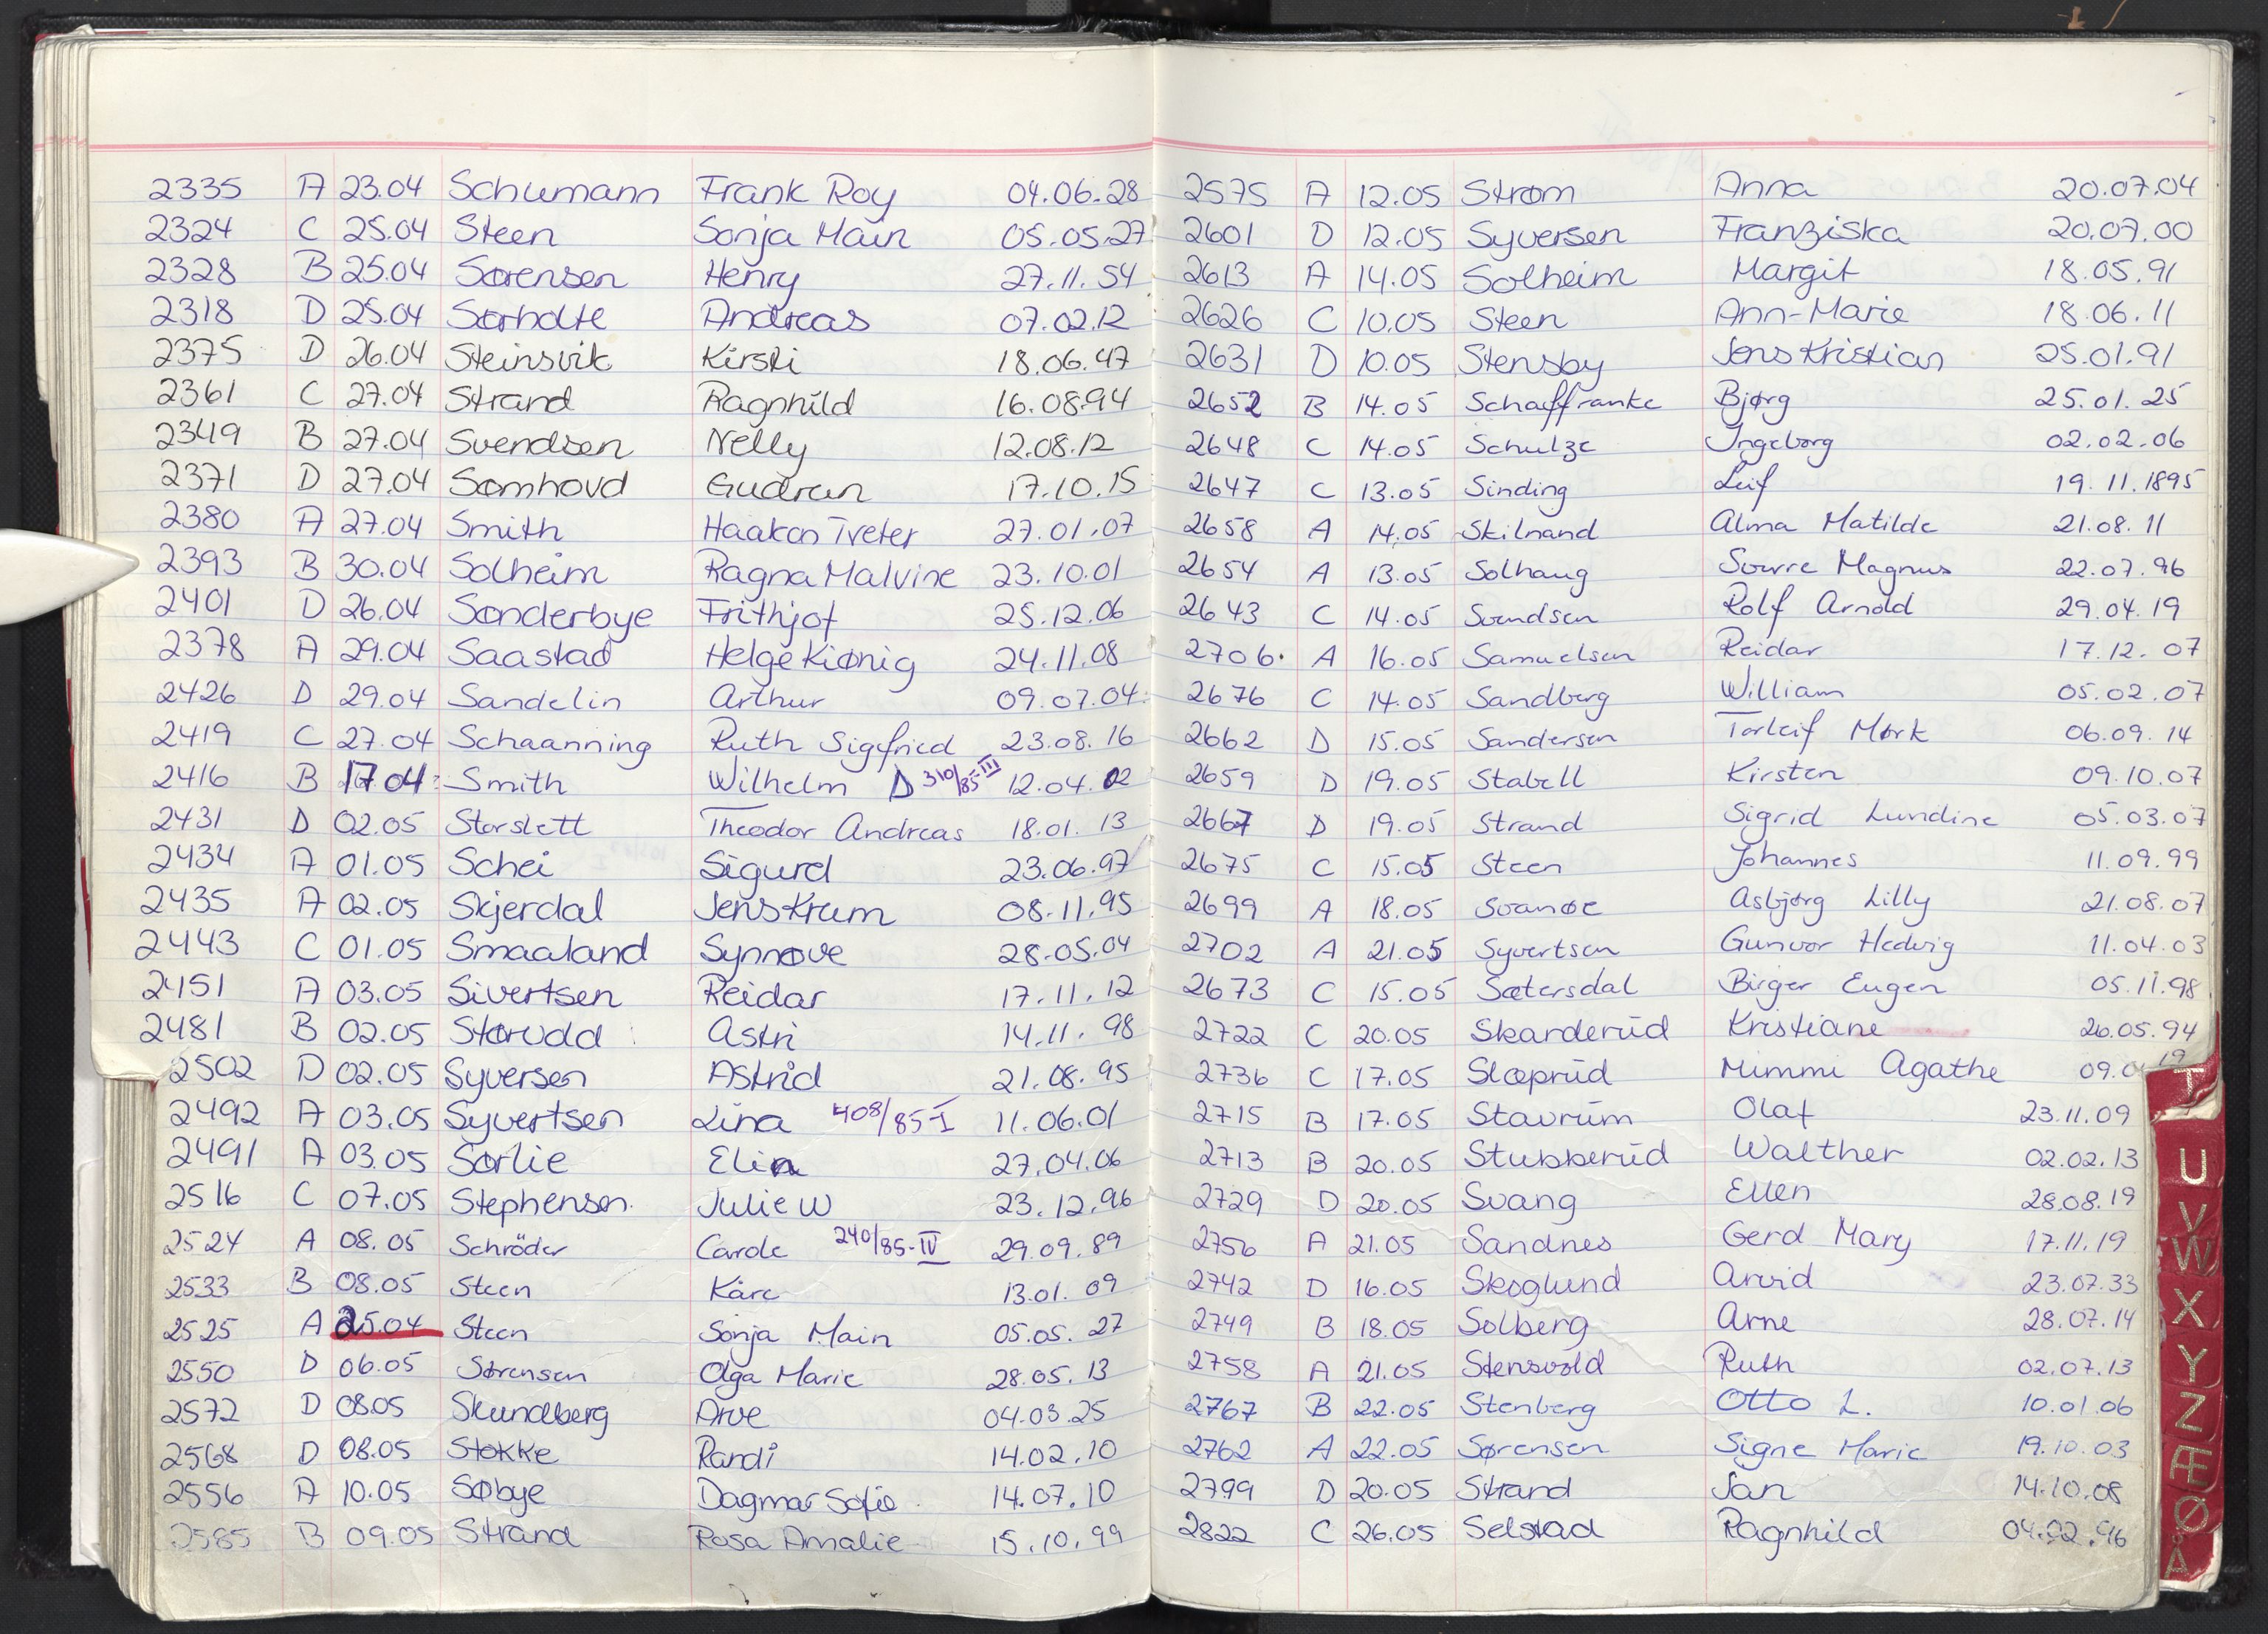 2335 A 23.04 Schumann Frank Roy 04.06.28
2324 C 25.04 Steen Sonja Main 05.05.27
2328 B 25.04 Sørensen Henry 27.11.54
2318 D 25.04 Sørholte Andreas 07.02.12
2375 D 26.04 Steinsvik Kirsti 18.06.47
2361 C 27.04 Strand Ragnhild 16.08.94
2349 B 27.04 Svendsen Nelly 12.08.12
2371 D 27.04 Sømhovd Gudrun 17.10.15
2380 A 27.04 Smith Haakon Tveter 27.01.07
2393 B 30.04 Solheim Ragna Malvine 23.10.01
2401 D 26.04 Sønderbye Frithjof 25.12.06
2378 A 29.04 Saastad Helge Kiønig 24.11.08
2426 D 29.04 Sandelin Arthur 09.07.04
2419 C 27.04 Schaanning Ruth Sigfried 23.08.16
2416 B 17.04 Smith Wilhelm D 310/85-III 12.04.02
2431 D 02.05 Storslett Theodor Andreas 18.01.13
2434 A 01.05 Schei Sigurd 23.06.97
2435 A 02.05 Skjerdal Jens Krum 08.11.95
2443 C 01.05 Smaaland Synnøve 28.05.04
2451 A 03.05 Sivertsen Reidar 17.11.12
2481 B 02.05 Astri 14.11.98
2502 D 02.05 Syversen Astrid 21.08.95
2492 A 03.05 Syvertsen Lina 408/85-I 11.06.01
2491 A 03.05 Sørlie Elin 27.04.06
2516 C 07.05 Stephensen Julie W 23.12.96
2524 A 08.05 Schröder Carole 240/85-IV 29.09.89
2533 B 08.05 Steen Kåre 13.01.09
2525 A 25.04 Steen Sonja Main 05.05.27
2550 D 06.05 Sørensen Olga Marie 28.05.13
2572 D 08.05 Skundberg Arve 04.03.25
2568 D 08.05 Stokke Randi 14.02.10
2556 A 10.05 Søbye Dagmar Sofie 14.07.10
2585 B 09.05 Strand Rosa Amalie 15.10.99
2575 A 12.05 Strøm Anna 20.07.04
2601 D 12.05 Syversen Franziska 20.07.00
2613 A 14.05 Solheim Margit 18.05.91
2626 C 10.05 Steen Ann-Marie 18.06.11
2631 D 10.05 Stensby Jens Kristian 25.01.91
2652 B 14.05 Schaffranke Bjørg 25.01.25
2648 C 14.05 Schulze Ingeborg 02.02.06
2647 C 13.05 Sinding Leif 19.11.1895
2658 A 14.05 Skilnand Alma Matilde 21.08.11
2654 A 13.05 Solhaug Magnus 22.07.96
2643 C 14.05 Svendsen Rolf Arnold 29.04.19
2706. A 16.05 Samuelsen Reidar 17.12.07
2676 C 14.05 Sandberg William 05.02.07
2662 D 15.05 Sandersen Torleif Mørk 06.09.14
2659 D 19.05 Stabell Kirsten 09.10.07
2667 D 19.05 Strand Sigrid Lundine 05.03.07
2675 C 15.05 Steen Johannes 11.09.99
2699 A 18.05 Svanøe Asbjørg Lilly 21.08.07
2702 A 21.05 Syvertsen Gunvor Hedvig 11.04.03
2673 C 15.05 Sætersdal Birger Eugen 05.11.98
2722 C 20.05 Skarderud Kristiane 26.05.94
2736 C 17.05 Slæprud Mimmi Agathe 09.0 19
2715 B 17.05 Stavrum Olaf 23.11.09
2713 B 20.05 Stubberud Walther 02.02.13
2729 D 20.05 Svang Ellen 28.08.19
2756 A 21.05 Sandnes Gerd Mary 17.11.19
2742 D 16.05 Skoglund Arvid 23.07.33
2749 B 18.05 Solberg Arne 28.07.14
2758 A 21.05 Stensvold Ruth 02.07.13
2767 B 22.05 Stenberg Otto L. 10.01.06
2762 A 22.05 Sørensen Signe Marie 19.10.03
2799 D 20.05 Strand Jan 14.10.08
2822 C 26.05 Selstad Ragnhild 04.02.96
T
U
V
W
X
Y
Z
Æ
Ø
Å